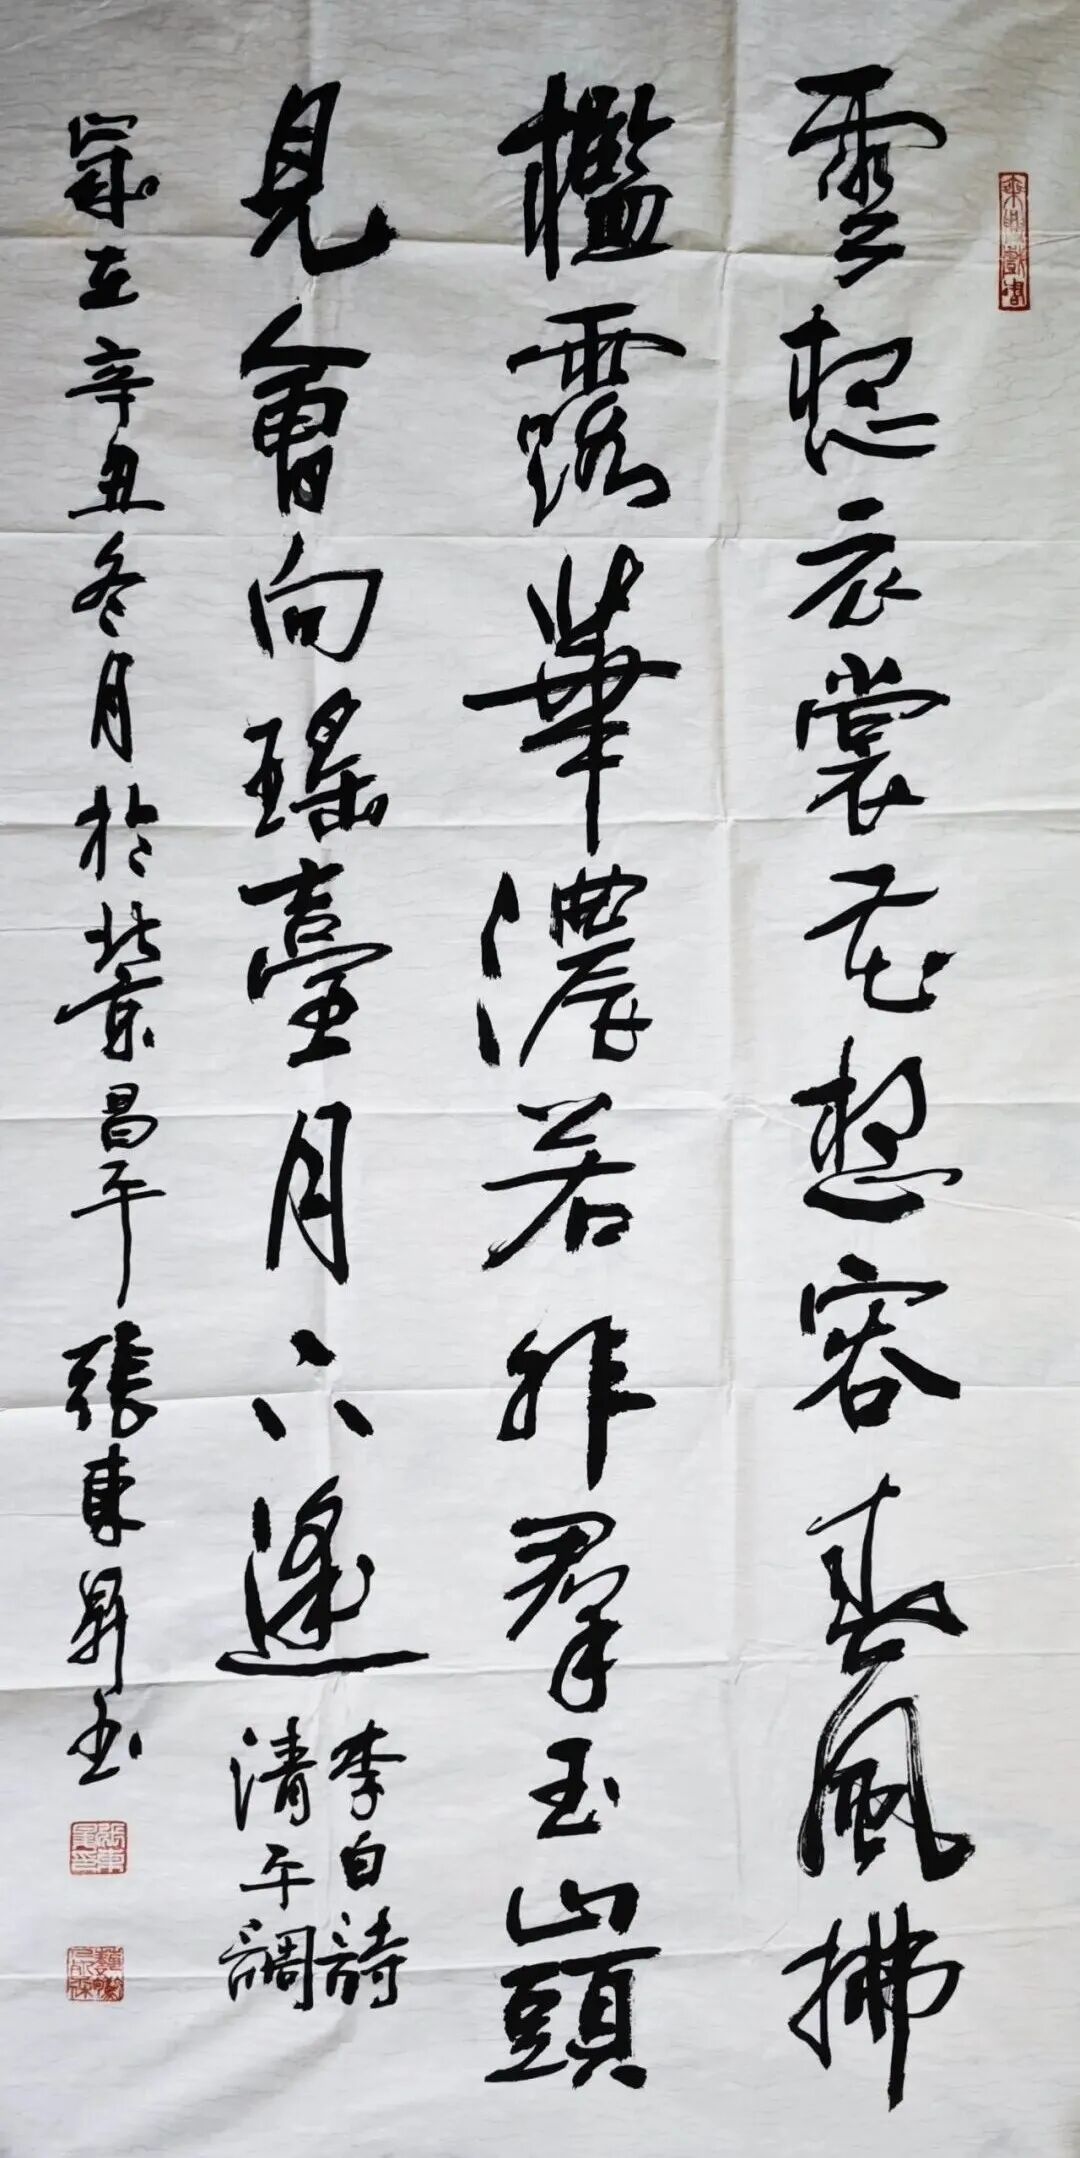 雲想衣裳花想容春風拂
檻露華濃若非羣玉山頭
見會向瑶臺月下逢
李白詩
清平調
歲在辛丑冬月於北京昌平張東升書